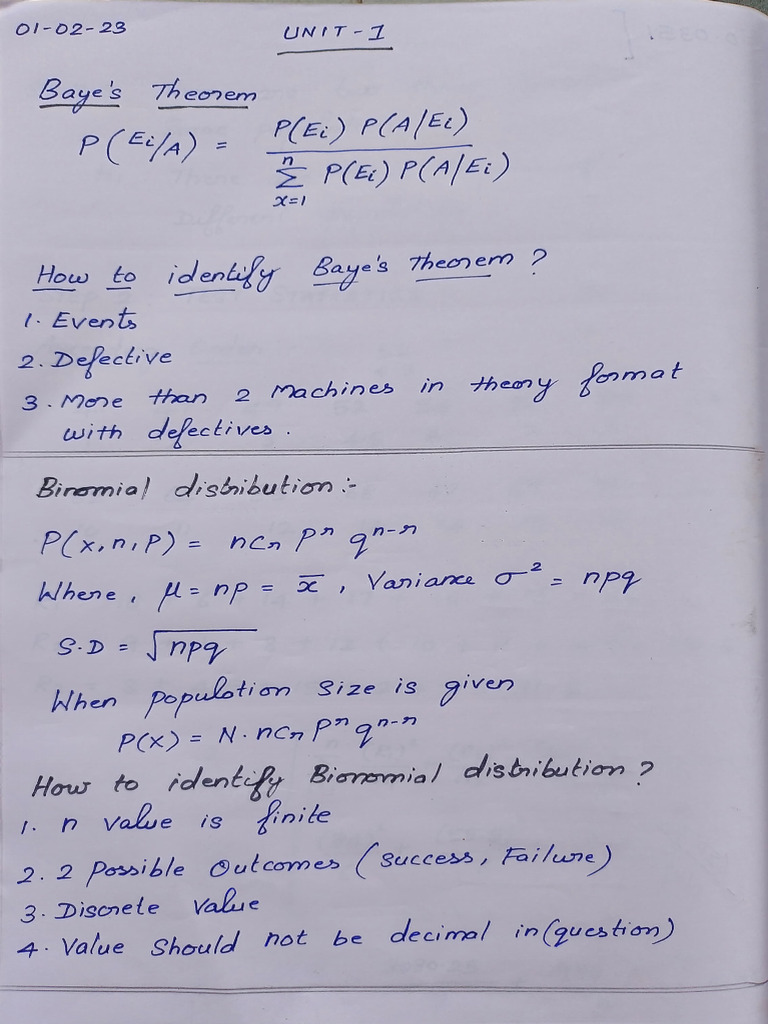 01-02-23
UNIT-1
Baye's Theorem
P(Ei/A) = P(Ei) P(A/Ei)
n
Σ P(Ei) P(A/Ei)
x=1
How to identify Baye's Theorem?
1. Events
2. Defective
3. More than 2 Machines in theory format
with defectives.
Binomial distribution:-
P(x,n,P) = ncr pr qn-r
Where, μ = np = x̄, Variance σ² = npq
S.D = √npq
When population size is given
P(x) = N.ncr pr qn-r
How to identify Bionomial distribution?
1. n value is finite
2. 2 Possible Outcomes (Success, Failure)
3. Discrete Value
4. Value Should not be decimal in(question)